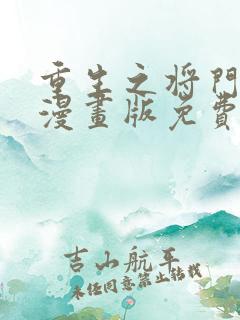 重生之将門
漫畫版免費
吉山航平
未经同意禁止转载